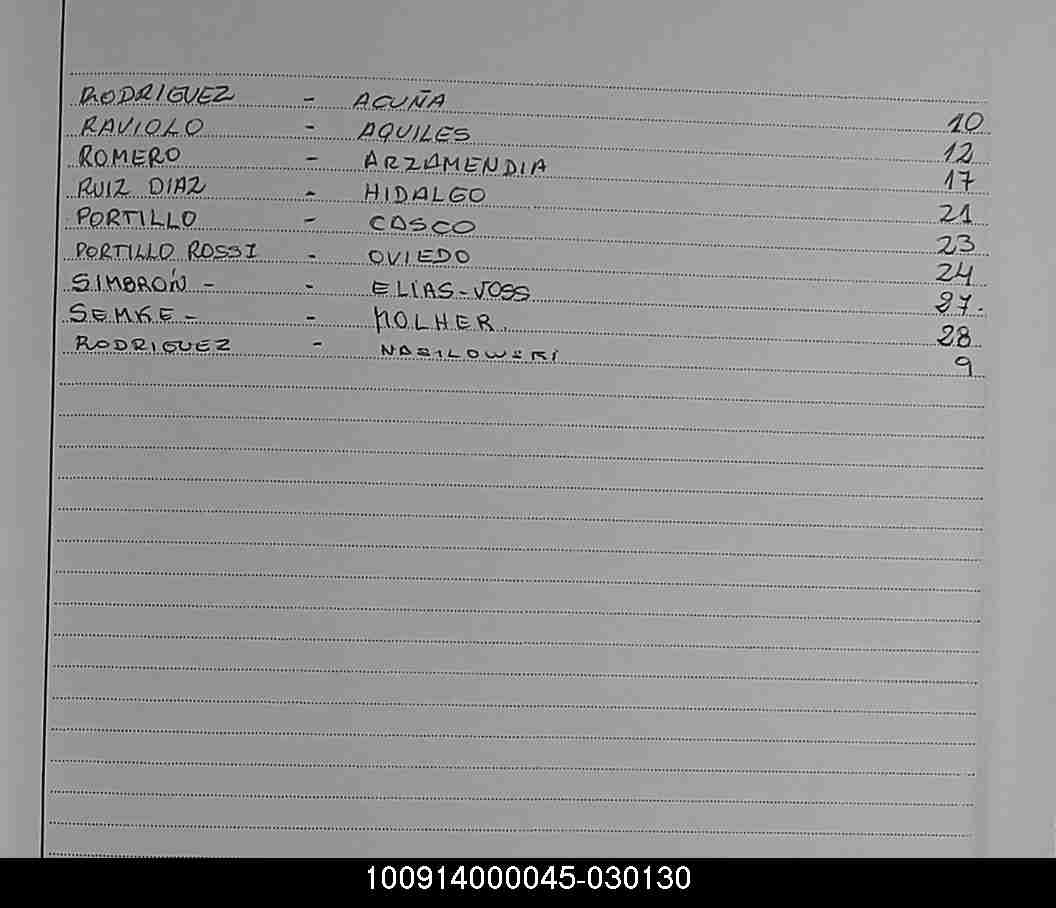 RODRIGUEZ - ACUÑA 10
RAVIOLO - AQUILES 12
ROMERO - ARZAMENDIA 17
RUIZ DIAZ - HIDALGO 21
PORTILLO - CASCO 23
PORTILLO ROSSI - OVIEDO 24
SIMBRON - - ELIAS-VOSS 27.
SEMKE - - MOLHER. 28
RODRIGUEZ - NASILOWSKI 9
100914000045-030130